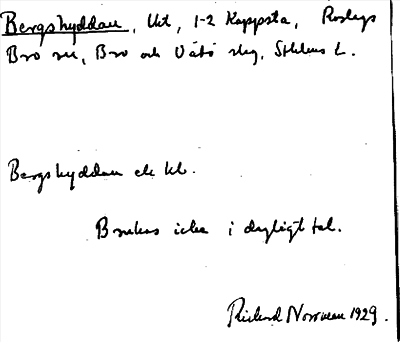 Bergshyddan, Ukt, 1-2 Kappsta, Roslags
Bro sn, Bro och Vätö skg, Sthlms L.
Bergshyddan ek kl.
Brukas icke i dagligt tal.
Rickard Norrman 1929.